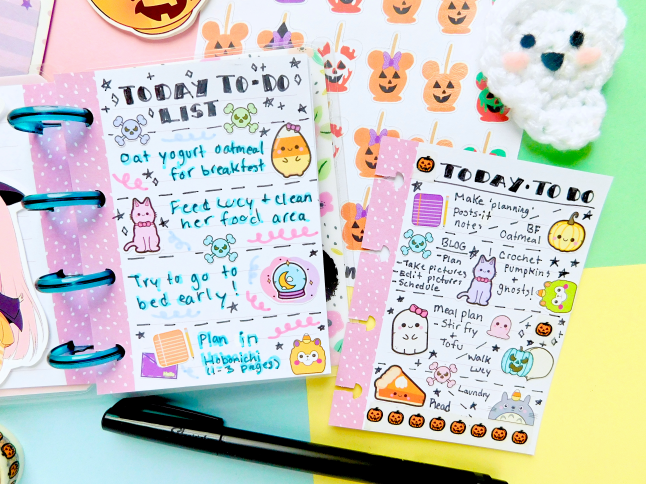 TODAY TO-DO
LIST
Oat yogurt oatmeal
for breakfast
Feed Lucy + clean
her food area
Try to go to
bed early!
Plan in
Hobonichi
(1-3 pages)
TODAY • TO DO
Make 'planning'
Posts-it
notes
BF
Oatmeal
BLOG
-Plan
-Take pictures
-Edit pictures
-Schedule
Crochet
Pumpkins
+
ghosty!
meal plan
- Stir fry
+
Tofu
walk
Lucy
Laundry
Read